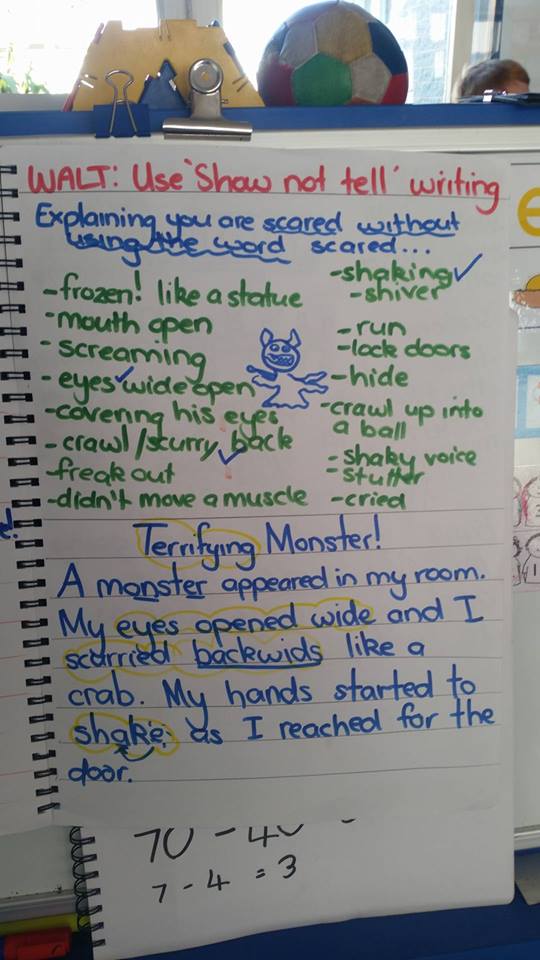 WALT: Use 'Show not tell' writing
Explaining you are scared without
using the word scared...
-frozen! like a statue
-mouth open
-screaming
-eyes wide open
-covering his eyes
-crawl/scurry back
-freak out
-didn't move a muscle
-shaking
-shiver
-run
-lock doors
-hide
-crawl up into
a ball
-shaky voice
-stutter
-cried
Terrifying Monster!
A monster appeared in my room.
My eyes opened wide and I
scurried backwids like a
crab. My hands started to
shake. as I reached for the
door.
70 - 40
7 - 4 = 3